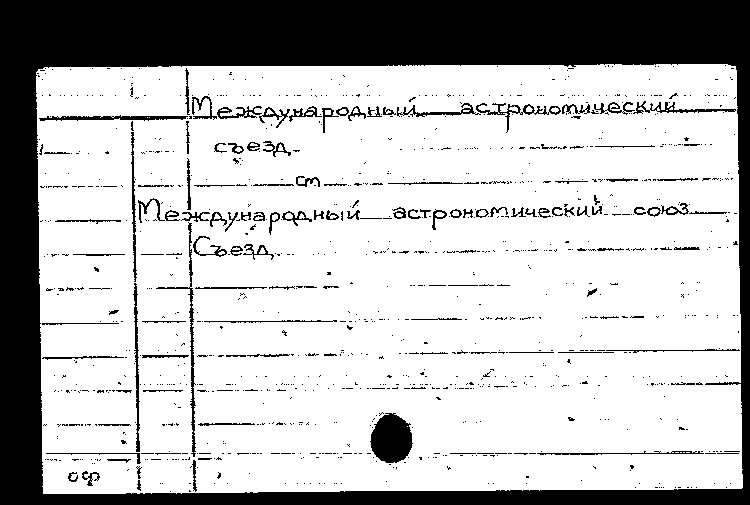 Международный астрономический
съезд.
см
Международный астрономический союз.
Съезд.
оф